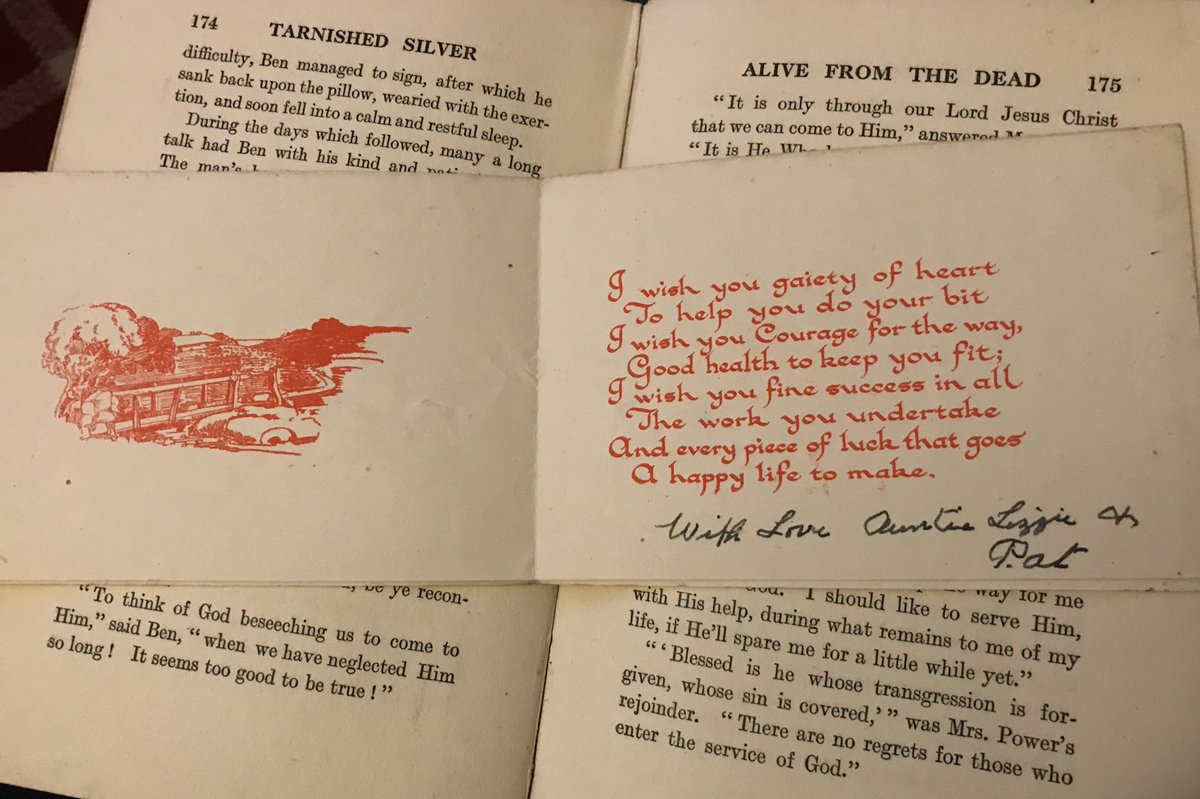 174 TARNISHED SILVER
difficulty, Ben managed to sign, after which he
sank back upon the pillow, wearied with the exer-
tion, and soon fell into a calm and restful sleep.
During the days which followed, many a long
talk had Ben with his kind and
The man's
ALIVE FROM THE DEAD 175
"It is only through our Lord Jesus Christ
that we can come to Him," answered
"It is He Who
I wish you gaiety of heart
To help you do your bit
I wish you Courage for the way,
Good health to keep you fit;
I wish you fine success in all
The work you undertake
And every piece of luck that goes
A happy life to make.
With Love Auntie Lizzie &
Pat
be ye recon-
"To think of God beseeching us to come to
Him," said Ben, "when we have neglected Him
so long! It seems too good to be true!"
God. way for me
with His help, during what remains to me of my
life, if He'll spare me for a little while yet."
"'Blessed is he whose transgression is for-
given, whose sin is covered,'" was Mrs. Power's
rejoinder. "There are no regrets for those who
enter the service of God."